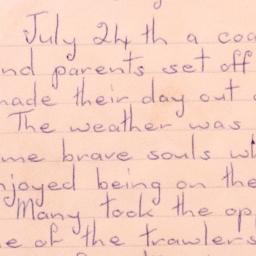 July 24th a coa
nd parents set off
made their day out
The weather was
me brave souls wh
njoyed being on the
Many took the op
e of the trawlers